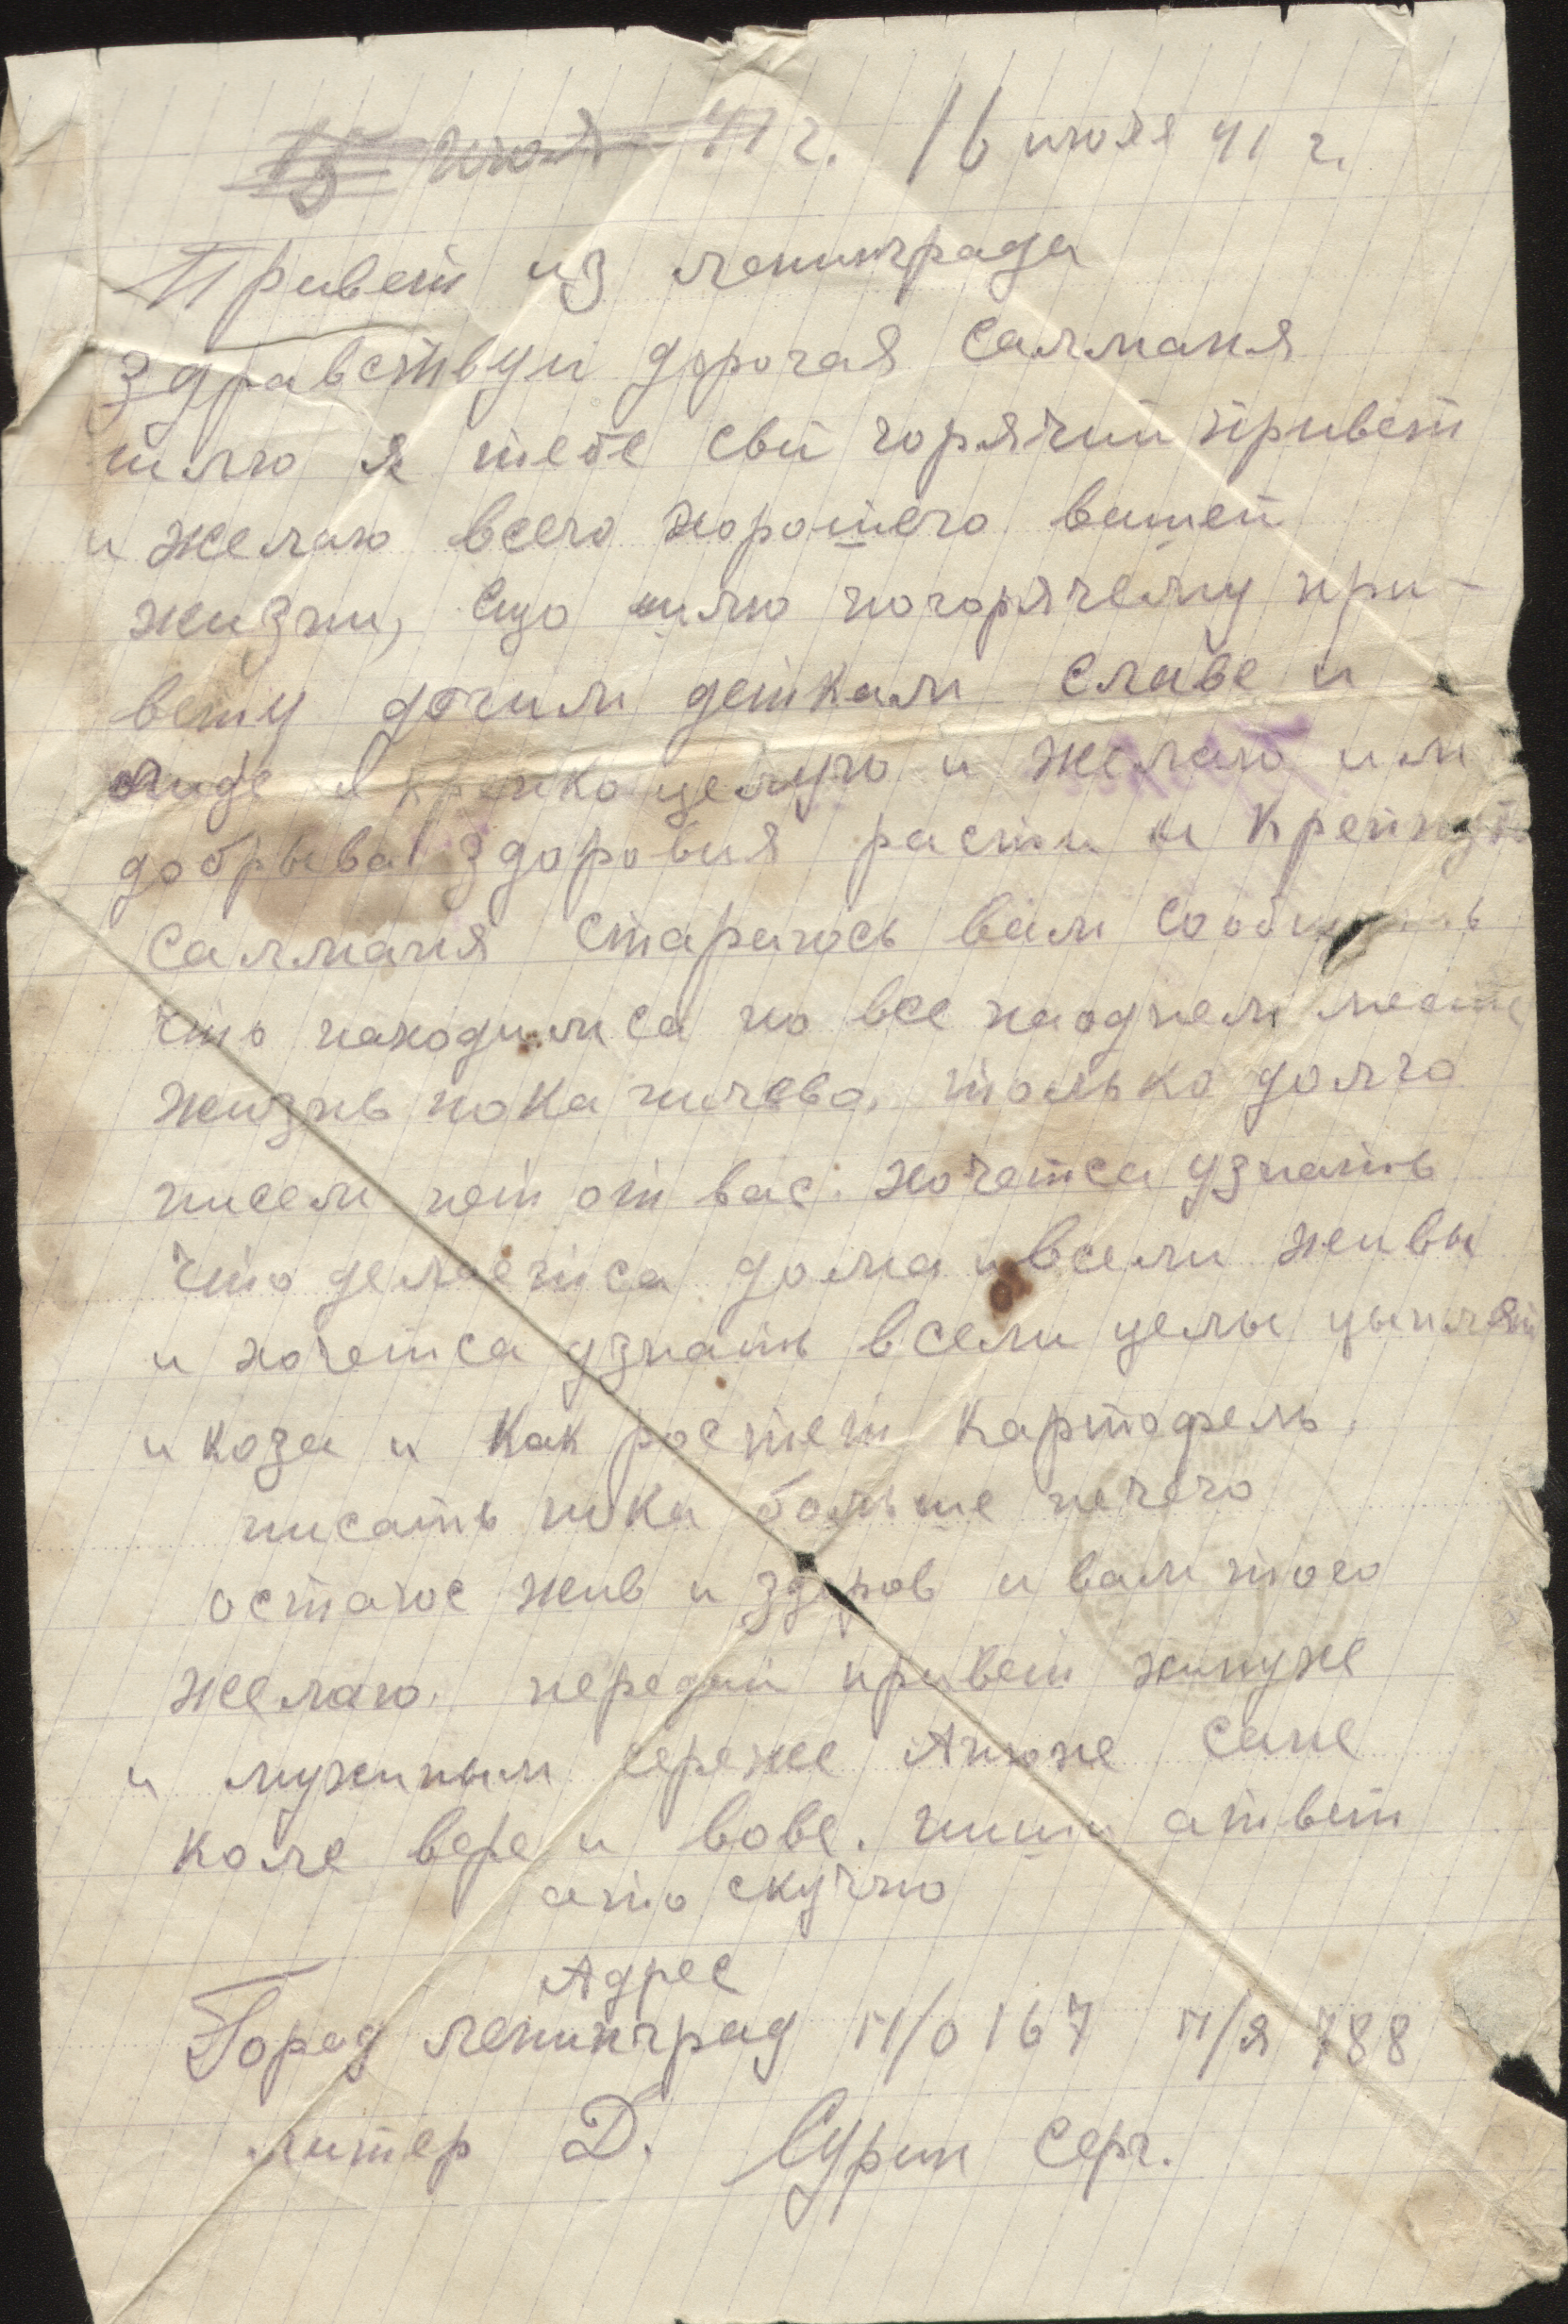 15 июля 41 г. 16 июля 41 г.
Привет из ленинграда
Здравствуй дорогая Салманя
шлю я тебе свй горячий привет
и желаю всего хорошего вашей
жизни, ещо шлю погорячему при-
вету дочим деткам Славе и
лиде я крепко целую и желаю им
добрыва здоровия расти и крепнуть
Салманя стараюсь вам сообщить
что находимса по все наоднем месте
жизнь пока ничево. только долго
писем нет от вас. хочетса узнать
что делаетса дома и всели живы
и хочетса узнать всели целы цыплят
и коза и как ростет картофель.
писать пока больше нечего
остаюс жив и здоров и вам того
желаю. передай привет
и сереже Анюне Сане
коле вере и вове. пиши атвет
ато скучно
Адрес
Город ленинград п/о 167 п/я 788
литер Д. Сурин Серг.